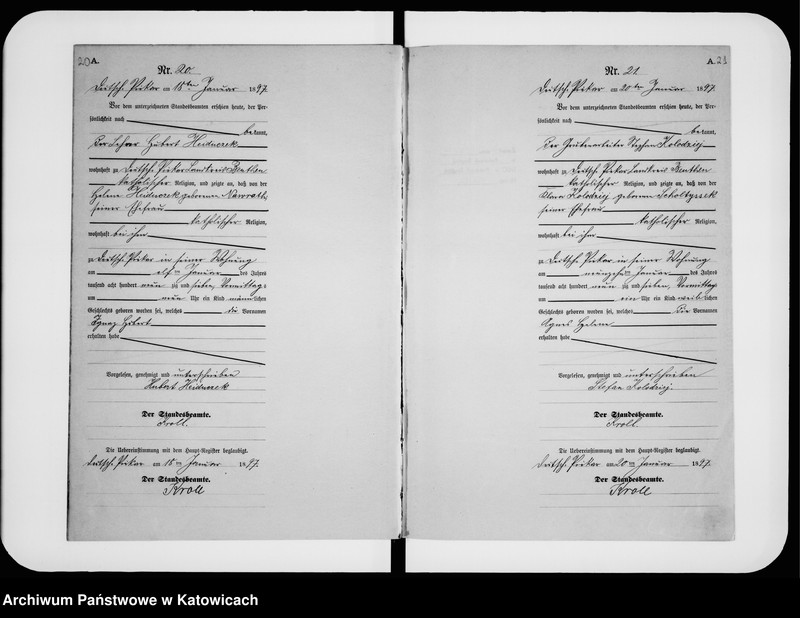 20 A.
Nr. 20.
Deutsch Piekar am 18ten Januar 1897.
Vor dem unterzeichneten Standesbeamten erschien heute, der Per-
sönlichkeit nach
bekannt,
der Lehrer Hubert Heiducrek
wohnhaft zu Deutsch Piekar Landkreis Beuthen
katholischer Religion, und zeigte an, daß von der
Helene Heiducrek geborenen
seiner Ehefrau
katholischer Religion,
wohnhaft bei ihm
zu Deutsch Piekar in seiner Wohnung
am elften Januar des Jahres
tausend acht hundert neunzig und sieben, Vormittags
um neun Uhr ein Kind männlichen
Geschlechts geboren worden sei, welches die Vornamen
Ignaz Hubert
erhalten habe
Vorgelesen, genehmigt und unterschrieben
Hubert Heiduczek
Der Standesbeamte.
Kroll.
Die Uebereinstimmung mit dem Haupt-Register beglaubigt.
Deutsch Piekar am 18ten Januar 1897.
Der Standesbeamte.
Kroll
A. 21
Nr. 21
Deutsch Piekar am 20ten Januar 1897.
Vor dem unterzeichneten Standesbeamten erschien heute, der Per-
sönlichkeit nach
bekannt,
der Grubenarbeiter Stephan Kolodziej
wohnhaft zu Deutsch Piekar Landkreis Beuthen
katholischer Religion, und zeigte an, daß von der
Clara Kolodziej geborenen Scholtyssek
seiner Ehefrau
katholischer Religion,
wohnhaft bei ihm
zu Deutsch Piekar in seiner Wohnung
am Januar des Jahres
tausend acht hundert neunzig und sieben, Vormittags
um ein Uhr ein Kind weiblichen
Geschlechts geboren worden sei, welches die Vornamen
Agnes Helene
erhalten habe
Vorgelesen, genehmigt und unterschrieben
Stefan Kolodziej.
Der Standesbeamte.
Kroll.
Die Uebereinstimmung mit dem Haupt-Register beglaubigt.
Deutsch Piekar am 20ten Januar 1897.
Der Standesbeamte.
Kroll
Archiwum Państwowe w Katowicach